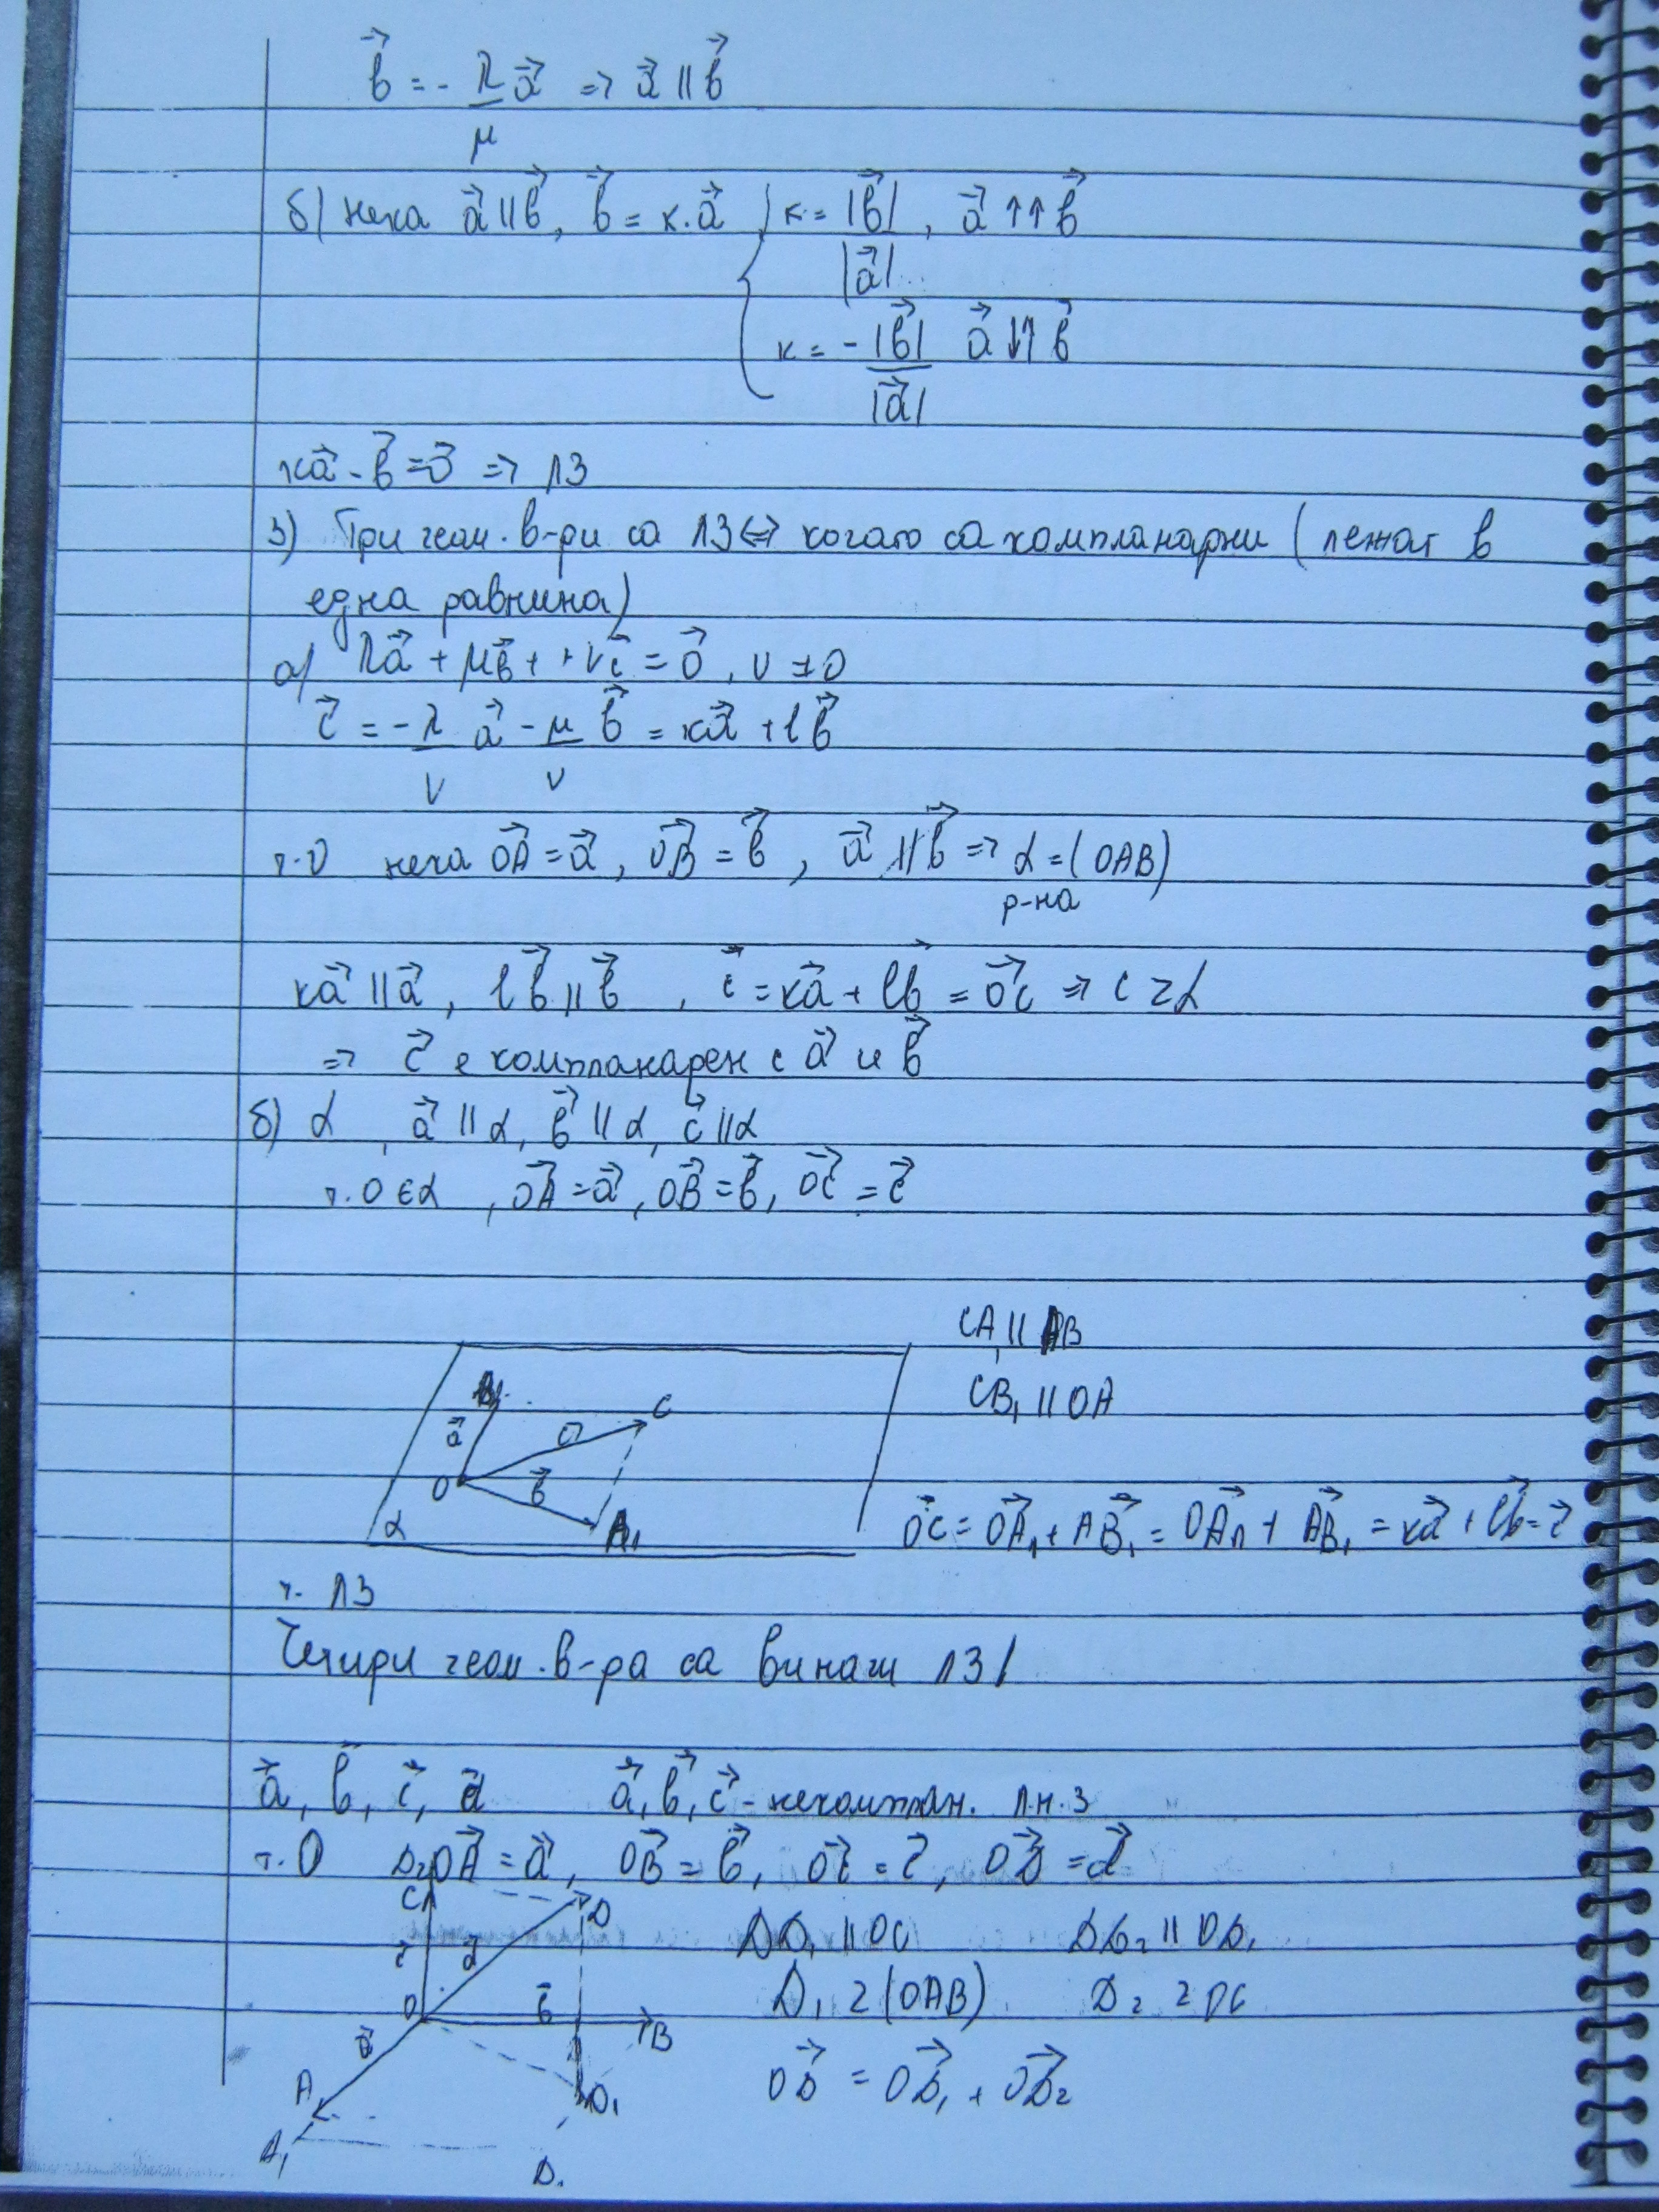 b⃗ = - λ/μ a⃗ => a⃗ || b⃗
б) нека a⃗ || b⃗, b⃗ = к.a⃗ { к = |b⃗|/|a⃗| , a⃗ ↑↑ b⃗
к = - |b⃗|/|a⃗| a⃗ ↓↑ b⃗
кa⃗ - b⃗ = o⃗ => ЛЗ
3) Три геом. в-ри са ЛЗ <=> когато са компланарни (лежат в
една равнина)
а) λa⃗ + μb⃗ + + νc⃗ = o⃗, ν ≠ 0
c⃗ = - λ/ν a⃗ - μ/ν b⃗ = кa⃗ + lb⃗
т.O нека OA⃗ = a⃗, OB⃗ = b⃗, a⃗ ∦ b⃗ => α = (OAB)
р-на
кa⃗ || a⃗, lb⃗ || b⃗, c⃗ = кa⃗ + lb⃗ = OC⃗ => C z α
=> c⃗ е компланарен с a⃗ и b⃗
б) α , a⃗ || α, b⃗ || α, c⃗ || α
т. O ∈ α , OA⃗ = a⃗, OB⃗ = b⃗, OC⃗ = c⃗
CA₁ || AB
CB₁ || OA
B₁ C
a⃗
O b⃗
α A₁
OC⃗ = OA⃗₁ + AB⃗₁ = OA⃗₁ + AB⃗₁ = кa⃗ + lb⃗ = c⃗
т. ЛЗ
Четири геом. в-ра са винаги ЛЗ!
a⃗, b⃗, c⃗, d⃗ a⃗, b⃗, c⃗ - некомплан. л.н.з
т. O OA⃗ = a⃗, OB⃗ = b⃗, OC⃗ = c⃗, OD⃗ = d⃗
D₂
C D
DD₁ || OC DD₂ || OD₁
c⃗ d⃗
D₁ z (OAB) D₂ z OC
O b⃗ B
a⃗
OD⃗ = OD⃗₁ + OD⃗₂
A D₁
A₁ D₁